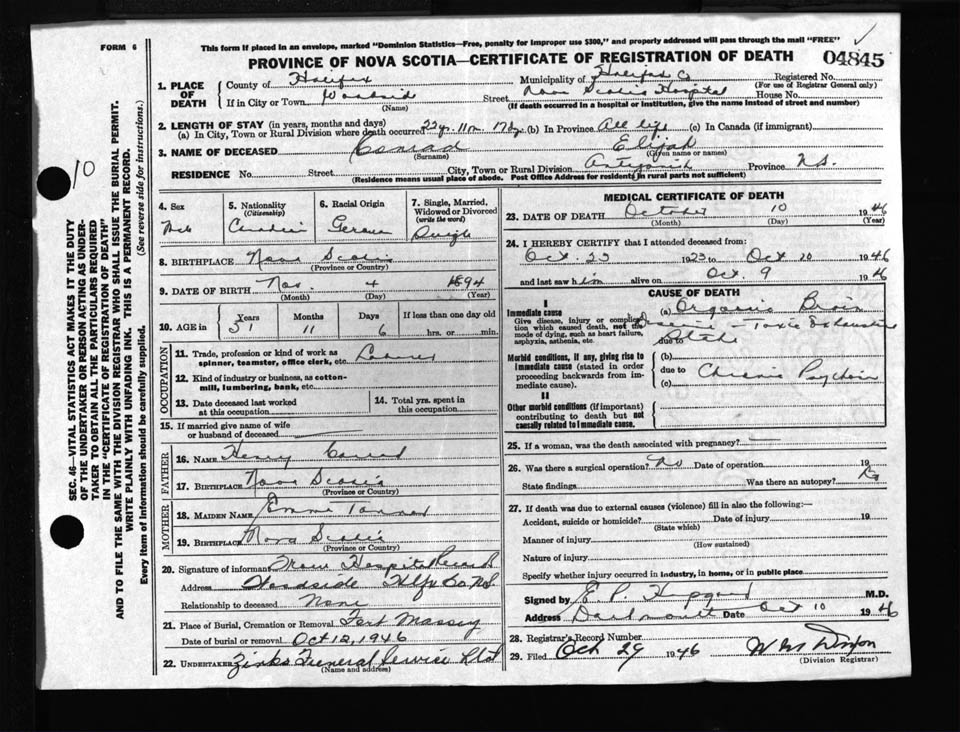 FORM 6
This form if placed in an envelope, marked "Dominion Statistics—Free, penalty for improper use $300," and properly addressed will pass through the mail "FREE"
PROVINCE OF NOVA SCOTIA—CERTIFICATE OF REGISTRATION OF DEATH
04845
10
SEC. 46—VITAL STATISTICS ACT MAKES IT THE DUTY
OF THE UNDERTAKER OR PERSON ACTING AS UNDER-
TAKER TO OBTAIN ALL THE PARTICULARS REQUIRED
IN THE "CERTIFICATE OF REGISTRATION OF DEATH"
AND TO FILE THE SAME WITH THE DIVISION REGISTRAR WHO SHALL ISSUE THE BURIAL PERMIT.
WRITE PLAINLY WITH UNFADING INK. THIS IS A PERMANENT RECORD.
Every item of information should be carefully supplied. (See reverse side for instructions.)
1. PLACE OF DEATH
County of Halifax Municipality of Halifax Co Registered No.
(For use of Registrar General only)
If in City or Town Street Nova Scotia Hospital House No.
(Name) (If death occurred in a hospital or institution, give the name instead of street and number)
2. LENGTH OF STAY (in years, months and days)
(a) In City, Town or Rural Division where death occurred 22 yr. 11 m. 17 dy. (b) In Province All life (c) In Canada (if immigrant)
3. NAME OF DECEASED Conrad Elijah
(Surname) (Given name or names)
RESIDENCE No. Street City, Town or Rural Division Antigonish Province N.S.
(Residence means usual place of abode. Post Office Address for residents in rural parts not sufficient)
4. Sex Male
5. Nationality (Citizenship) Canadian
6. Racial Origin German
7. Single, Married, Widowed or Divorced (write the word) Single
8. BIRTHPLACE Nova Scotia
(Province or Country)
9. DATE OF BIRTH Nov. 4 1894
(Month) (Day) (Year)
10. AGE in Years Months Days If less than one day old
51 11 6 hrs. or min.
OCCUPATION
11. Trade, profession or kind of work as spinner, teamster, office clerk, etc. Laborer
12. Kind of industry or business, as cotton-mill, lumbering, bank, etc.
13. Date deceased last worked at this occupation
14. Total yrs. spent in this occupation
15. If married give name of wife or husband of deceased
FATHER
16. NAME Henry Conrad
17. BIRTHPLACE Nova Scotia
(Province or Country)
MOTHER
18. MAIDEN NAME Emma Tanner
19. BIRTHPLACE Nova Scotia
(Province or Country)
20. Signature of informant From Hospital Record
Address Woodside Hlfx Co. N.S.
Relationship to deceased None
21. Place of Burial, Cremation or Removal Fort Massey
Date of burial or removal Oct 12, 1946
22. UNDERTAKER Zinks Funeral Service Ltd
(Name and address)
MEDICAL CERTIFICATE OF DEATH
23. DATE OF DEATH October 10 1946
(Month) (Day)
24. I HEREBY CERTIFY that I attended deceased from:
Oct. 23 1923 to Oct 10 1946
and last saw him alive on Oct. 9 1946
CAUSE OF DEATH
I
Immediate cause
Give disease, injury or complication which caused death, not the mode of dying, such as heart failure, asphyxia, asthenia, etc.
(a) Organic Brain
Disease - Toxic Exhaustive
due to State
Morbid conditions, if any, giving rise to immediate cause (stated in order proceeding backwards from immediate cause).
(b)
due to Chronic Psychosis
(c)
II
Other morbid conditions (if important) contributing to death but not causally related to immediate cause.
25. If a woman, was the death associated with pregnancy?
26. Was there a surgical operation? No Date of operation 19
State findings Was there an autopsy? No
27. If death was due to external causes (violence) fill in also the following:—
Accident, suicide or homicide? Date of injury 19
(State which)
Manner of injury
(How sustained)
Nature of injury
Specify whether injury occurred in industry, in home, or in public place
Signed by E. P. M.D.
Address Dartmouth Date Oct 10 1946
28. Registrar's Record Number
29. Filed Oct 29 1946 W M Dixon
(Division Registrar)